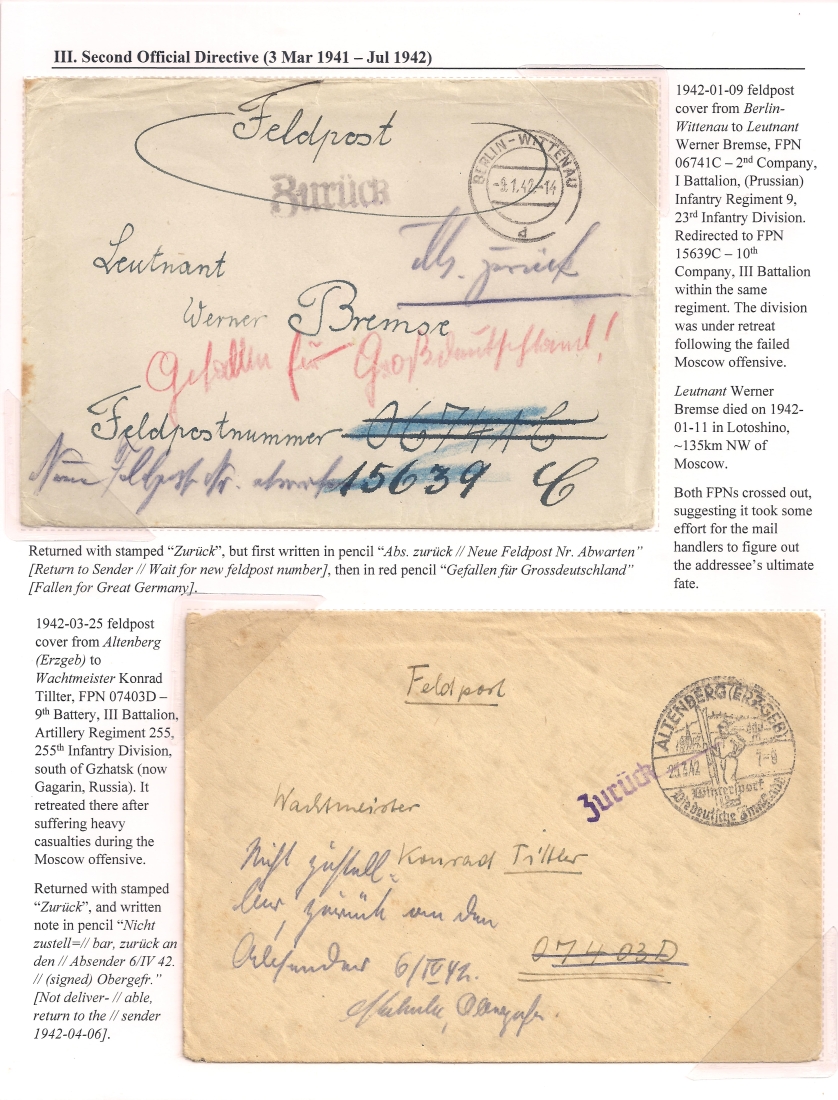 III. Second Official Directive (3 Mar 1941 – Jul 1942)
Feldpost
Zurück
BERLIN-WITTENAU
-9.1.42.-14
d
Abs. zurück
Leutnant
Werner Bremse
Gefallen für Großdeutschland!
Feldpostnummer 06741C
Neue Feldpost Nr. abwarten 15639 C
1942-01-09 feldpost
cover from Berlin-
Wittenau to Leutnant
Werner Bremse, FPN
06741C – 2nd Company,
I Battalion, (Prussian)
Infantry Regiment 9,
23rd Infantry Division.
Redirected to FPN
15639C – 10th
Company, III Battalion
within the same
regiment. The division
was under retreat
following the failed
Moscow offensive.
Leutnant Werner
Bremse died on 1942-
01-11 in Lotoshino,
~135km NW of
Moscow.
Both FPNs crossed out,
suggesting it took some
effort for the mail
handlers to figure out
the addressee's ultimate
fate.
Returned with stamped “Zurück”, but first written in pencil “Abs. zurück // Neue Feldpost Nr. Abwarten”
[Return to Sender // Wait for new feldpost number], then in red pencil “Gefallen für Grossdeutschland”
[Fallen for Great Germany].
1942-03-25 feldpost
cover from Altenberg
(Erzgeb) to
Wachtmeister Konrad
Tillter, FPN 07403D –
9th Battery, III Battalion,
Artillery Regiment 255,
255th Infantry Division,
south of Gzhatsk (now
Gagarin, Russia). It
retreated there after
suffering heavy
casualties during the
Moscow offensive.
Returned with stamped
“Zurück”, and written
note in pencil “Nicht
zustell=// bar, zurück an
den // Absender 6/IV 42.
// (signed) Obergefr.”
[Not deliver- // able,
return to the // sender
1942-04-06].
Feldpost
ALTENBERG (ERZGEB)
25.3.42
7-8
Wintersport
Zurück
Wachtmeister
Konrad Tillter
Nicht zustell=
bar, zurück an den
Absender 6/IV 42.
07403D
Obergefr.